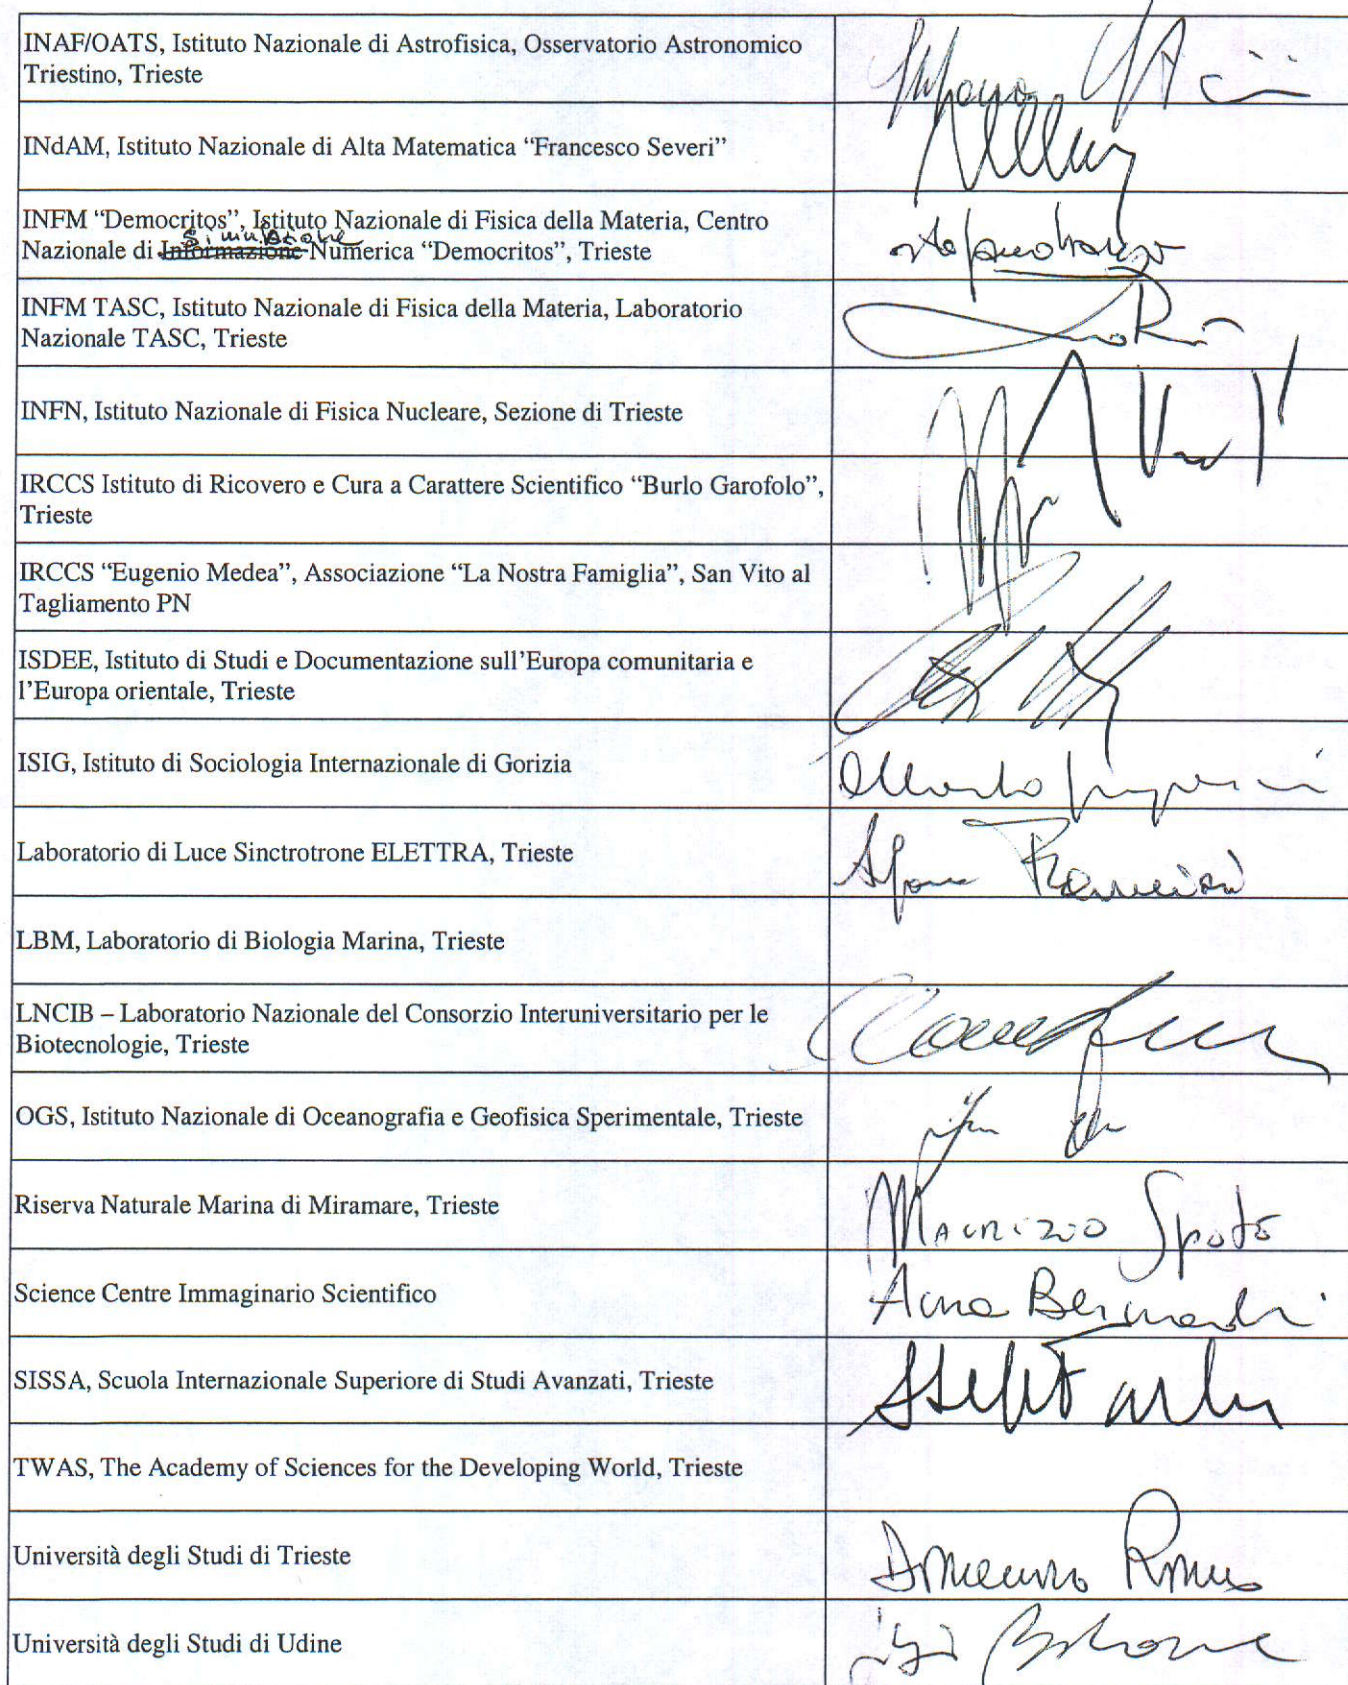 INAF/OATS, Istituto Nazionale di Astrofisica, Osservatorio Astronomico
Triestino, Trieste
INdAM, Istituto Nazionale di Alta Matematica “Francesco Severi”
INFM “Democritos”, Istituto Nazionale di Fisica della Materia, Centro
Simulazione
Nazionale di Informazione Numerica “Democritos”, Trieste
INFM TASC, Istituto Nazionale di Fisica della Materia, Laboratorio
Nazionale TASC, Trieste
INFN, Istituto Nazionale di Fisica Nucleare, Sezione di Trieste
IRCCS Istituto di Ricovero e Cura a Carattere Scientifico “Burlo Garofolo”,
Trieste
IRCCS “Eugenio Medea”, Associazione “La Nostra Famiglia”, San Vito al
Tagliamento PN
ISDEE, Istituto di Studi e Documentazione sull’Europa comunitaria e
l’Europa orientale, Trieste
ISIG, Istituto di Sociologia Internazionale di Gorizia
Laboratorio di Luce Sinctrotrone ELETTRA, Trieste
LBM, Laboratorio di Biologia Marina, Trieste
LNCIB – Laboratorio Nazionale del Consorzio Interuniversitario per le
Biotecnologie, Trieste
OGS, Istituto Nazionale di Oceanografia e Geofisica Sperimentale, Trieste
Riserva Naturale Marina di Miramare, Trieste
Maurizio Spoto
Science Centre Immaginario Scientifico
Anna Bernardi
SISSA, Scuola Internazionale Superiore di Studi Avanzati, Trieste
TWAS, The Academy of Sciences for the Developing World, Trieste
Università degli Studi di Trieste
Domenico Romeo
Università degli Studi di Udine